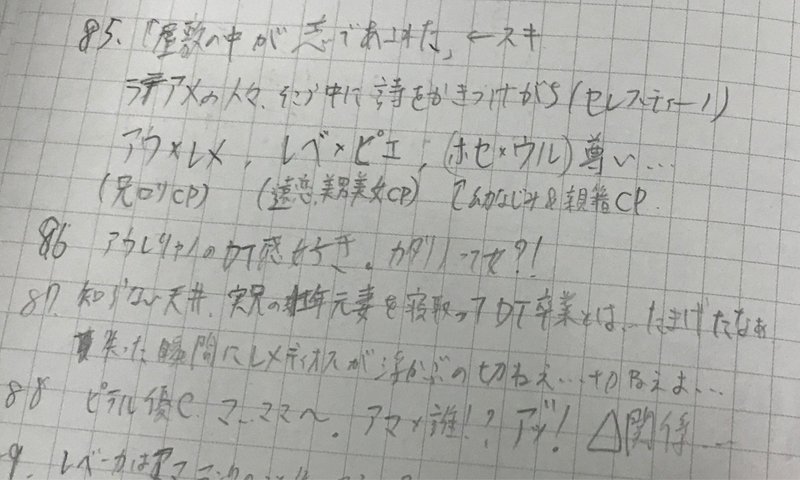 85. 「屋敷の中が恋であふれた」←スキ
の人々、そこら中に詩をかきつけがち(セレスティーノ)
アウ×レメ, レベ×ピエ, (ホセ×ウル) 尊い…
(兄ロリCP) (遠恋、美男美女CP) なじみ&親籍CP.
86 アウレリャノのDT感好き。カタリーって女?!
87. 知らない天井、実兄の 年元妻を寝取ってDT卒業とは…たまげたなぁ
失った瞬間にレメディオスが浮かぶの切ねえ…切ねえよ…
88 ピラル優C. マ…ママ〜。アマ×誰!?アッ!△関係…
9. レベーカはアマランタの